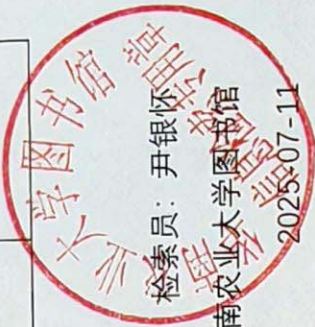 检索员：尹银怀
南农业大学图书馆
2025-07-11
业大学图书馆